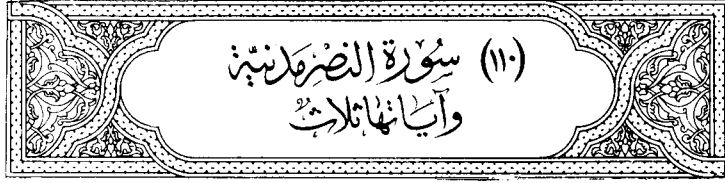 (١١٠) سُورَةُ النَّصْرِ مَدَنِيَّةٌ
وَآيَاتُهَا ثَلَاثٌ